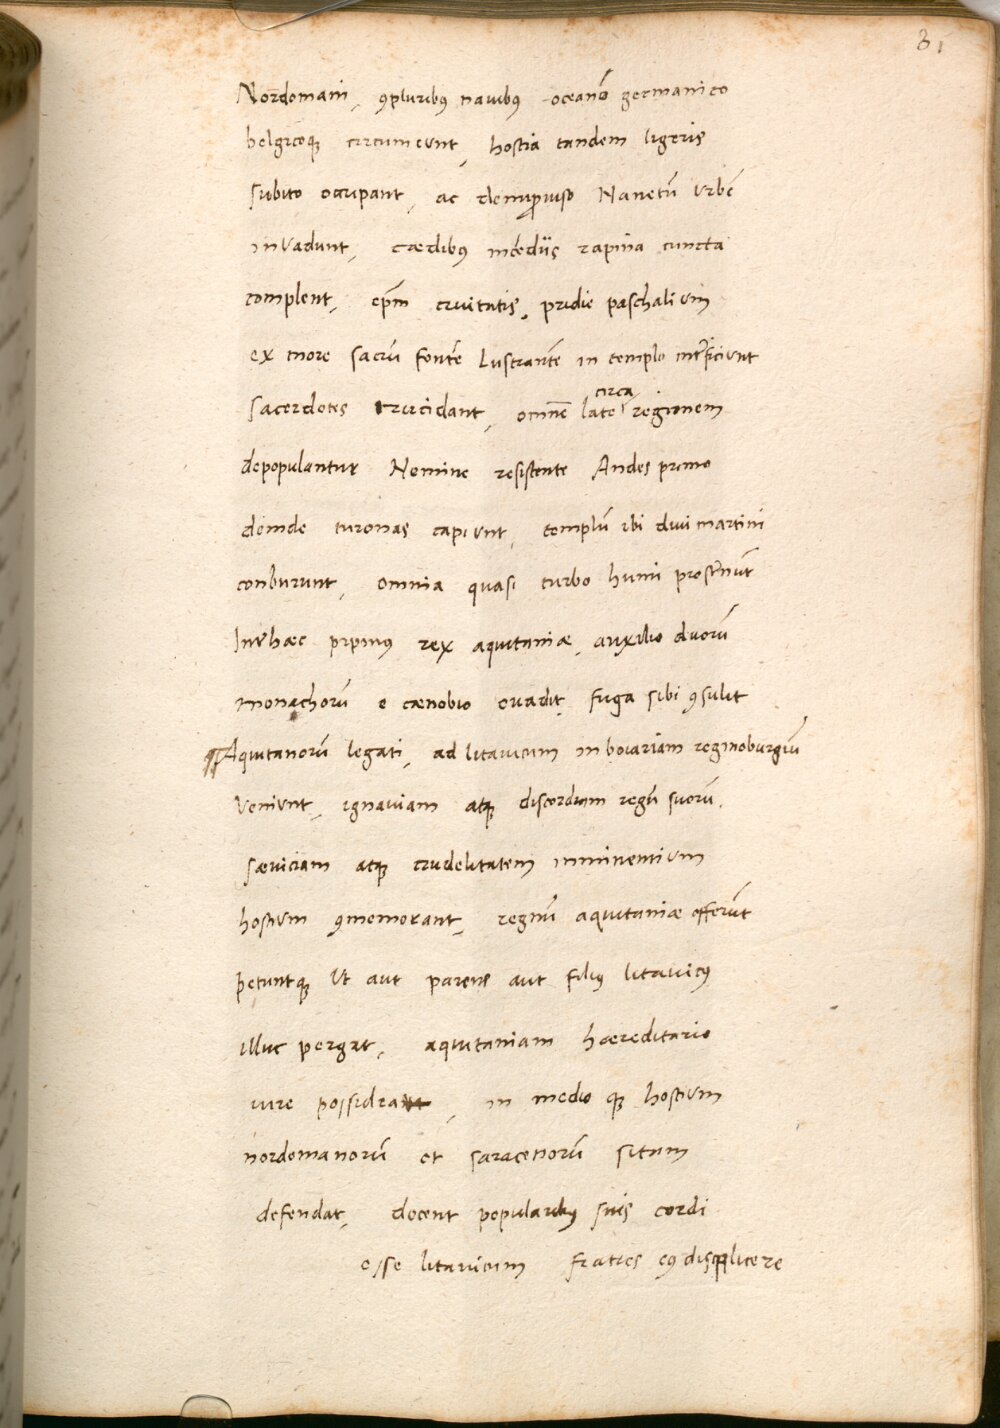 81
Nordomani, ꝯpluribꝰ nauibꝰ oceanō germanico
belgicoqꝫ circumeunt, hostia tandem ligeris
subito ocupant, ac deimꝓuiso Nanetū urbē
inuadunt, cædibꝰ incēdiis rapina cuncta
complent, ep̄m ciuitatis, pridie paschalium
ex more sacrū fontē Lustrantē in templo interficiunt
circa
sacerdotes trucidant, omnē late regionem
depopulantur Nemine resistente Andes primo
deinde turonas capiunt, templū ibi diui martini
conburunt, omnia quasi turbo humi prosternūt
Inter hæc pipinꝰ rex aquitaniæ, auxilio duorū
monachorū e cænobio euadit, fuga sibi ꝯsulit
Aquitanorū legati, ad litauicum in boiariam reginoburgiū
veniunt, ignauiam atqꝫ discordiam regū suorū,
sæuiciam atqꝫ crudelitatem imminentium
hostium ꝯmemorant, regnū aquitaniæ offerūt
petuntqꝫ Ut aut parens aut filiꝰ litauicꝰ
illuc pergat, aquitaniam hæreditario
iure possideat, in medio qꝫ hostium
nordomanorū et saracenorū sitam
defendat, docent popularibꝰ suis cordi
esse litauicum fratres eꝰ displicere